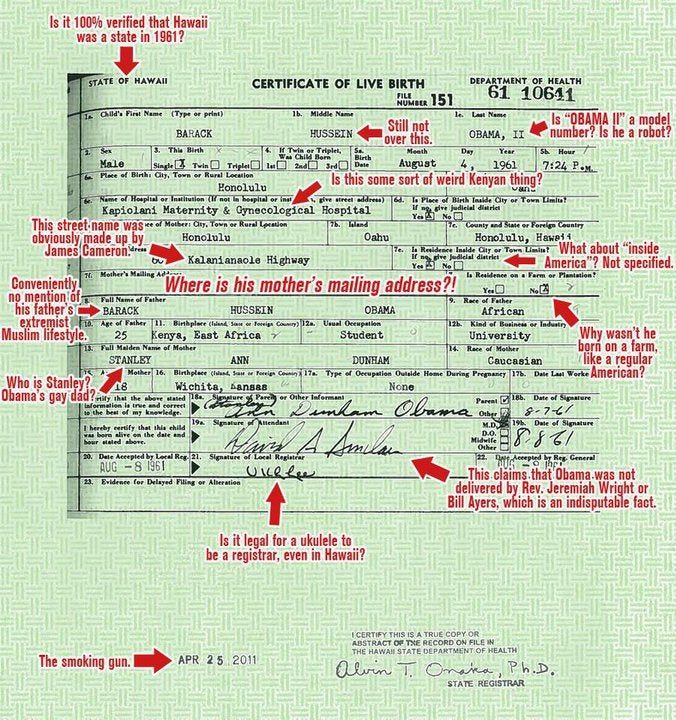 Is it 100% verified that Hawaii
was a state in 1961?
STATE OF HAWAII
CERTIFICATE OF LIVE BIRTH
DEPARTMENT OF HEALTH
FILE
NUMBER 151
61 10641
1a. Child's First Name (Type or print)
1b. Middle Name
1c. Last Name
BARACK
HUSSEIN
OBAMA, II
Still not
over this.
Is “OBAMA II” a model
number? Is he a robot?
2. Sex
3. This Birth
4. If Twin or Triplet,
Was Child Born
5a. Birth Date
Month
Day
Year
5b. Hour
Male
Single X Twin Triplet
1st 2nd 3rd
August
4, 1961
7:24 P.M.
6a. Place of Birth: City, Town or Rural Location
Honolulu
Is this some sort of weird Kenyan thing?
6c. Name of Hospital or Institution (If not in hospital or give street address)
6d. Is Place of Birth Inside City or Town Limits?
If no, give judicial district
Kapiolani Maternity & Gynecological Hospital
Yes X No
This street name was
obviously made up by
James Cameron.
of Mother: City, Town or Rural Location
7b. Island
7c. County and State or Foreign Country
Honolulu
Oahu
Honolulu, Hawaii
7e. Is Residence Inside City or Town Limits?
If no, give judicial district
Kalanianaole Highway
Yes X No
What about “inside
America”? Not specified.
7f. Mother's Mailing
Is Residence on a Farm or Plantation?
Yes No X
Where is his mother's mailing address?!
Conveniently
no mention of
his father's
extremist
Muslim lifestyle.
8. Full Name of Father
9. Race of Father
BARACK
HUSSEIN
OBAMA
African
10. Age of Father
11. Birthplace (Island, State or Foreign Country)
12a. Usual Occupation
12b. Kind of Business or Industry
25
Kenya, East Africa
Student
University
Why wasn't he
born on a farm,
like a regular
American?
13. Full Maiden Name of Mother
14. Race of Mother
STANLEY
ANN
DUNHAM
Caucasian
Who is Stanley?
Obama's gay dad?
Mother
16. Birthplace (Island, State or Foreign Country)
17a. Type of Occupation Outside Home During Pregnancy
17b. Date Last Worked
18
Wichita, Kansas
None
certify that the above stated
information is true and correct
to the best of my knowledge.
18a. Signature of Parent or Other Informant
Parent
Other
18b. Date of Signature
(Stanley) Ann Dunham Obama
8-7-61
I hereby certify that this child
was born alive on the date and
hour stated above.
19a. Signature of Attendant
M.D.
D.O.
Midwife
Other
19b. Date of Signature
David A Sinclair
8-8-61
20. Date Accepted by Local Reg.
21. Signature of Local Registrar
22. Date Accepted by Reg. General
AUG -8 1961
UKLee
23. Evidence for Delayed Filing or Alteration
This claims that Obama was not
delivered by Rev. Jeremiah Wright or
Bill Ayers, which is an indisputable fact.
Is it legal for a ukulele to
be a registrar, even in Hawaii?
The smoking gun.
APR 25 2011
I CERTIFY THIS IS A TRUE COPY OR
ABSTRACT OF THE RECORD ON FILE IN
THE HAWAII STATE DEPARTMENT OF HEALTH
Alvin T. Onaka, Ph.D.
STATE REGISTRAR